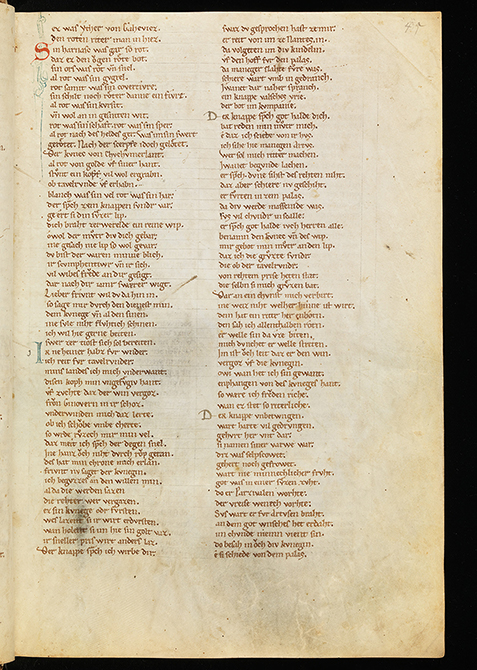 ez was ycher von Gaheviez.
den roten riter man in hiez.
Sin harnasc was gar so rot.
daz ez den ǒgen rǒte bot.
sin ors was rot vn̄ snel.
al rot was sin gvgrel.
rot samit was sin covertivre.
sin schilt noch rôter danne ein fivr.
al rot was sin kvrsit.
vn̄ wol an in gesniten wit.
rot was sin schaft. rot was sin sper.
al rot nach des heldes ger. was im sin swert
gerôtet. Nach der scerpfe idoch gelôtet.
Der kvnec von Chvchvmerlant.
al rot von golde vf siner hant.
stvnt ein kopf vil wol ergrabn.
ob tavelrvnde vf erhabn.
blanch was sin vel rot was sin har.
der sp̄ch zem knappen svnder var.
ge eret si din svzer lip.
dich braht zer werlde ein reine wip.
ǒwol der mvter div dich gebar.
ine gesach nie lip so wol gevar.
dv bist der waren minne blich.
ir scvmphentivr vn̄ ir sich.
vil wibes frǒde an dir gesigt.
dar nach dir iamr swære wigt.
Lieber frivnt wil dv da hin in.
so sage mir dvrch den dienest min.
dem kvnege vn̄ al den sinen.
ine svle niht flvhtech schinen.
ich wil hie gerne beiten.
swer zer tiost sich sol bereiten.
Ir neheiner habz fvr wnder.
ich reit fvr tavelrvnder.
mins landes ich mich vnderwant.
disen koph min vngefvgiv hant.
vf zvchte daz der win vergoz.
frǒn Ginovern in ir schoz.
vnderwinden mich daz lerte.
ob ich schǒbe vmbe cherte.
so wrde rvzech mir min vel.
daz meit ich sp̄ch der degen snel.
Ine hanz ǒch niht dvrch rǒp getan.
des hat min chrone mich erlan.
frivnt nv sager der kvnegin.
ich begvzzes an den willen min.
al da die werden sazen
die rehter wer vergazen.
ez sin kvnege ode fvrsten.
wes lazent si ir wirt erdvrsten.
wan holent si im hie sin golt vaz.
ir sneller pris wirt anders laz.
Der knappe sp̄ch ich wirbe dir.
swaz dv gesprochen hast ze mir.
er reit von im ze Nantes in.
da volgeten im div kindelin.
vf den hof fvr den palas.
da maneger slahte fvre was.
schiere wart vmb in gedranch.
Iwanet dar naher spranch.
ein knappe valsches vrie.
der bot im kumpanie.
Der knappe sp̄ch got halde dich.
bat reden min mvter mich.
e daz ich schiede von ir hvs.
ich sihe hie manegen artvs.
wer sol mich riter machen.
Iwanet begvnde lachen.
er sp̄ch dvne sihst des rehten niht.
daz aber schiere nv geschiht.
er fvrten in zem palas.
da div werde massenide was.
svs vil chvnder in scalle.
er sp̄ch got halde iwch herren alle.
benamn den kvnec vn̄ des wip.
mir gebot min mvter an den lip.
daz ich die grvzte svnder
die ob der tavelrvnder.
von rehtem prise heten stat.
die selbn si mich grvzen bat.
Dar an ein chvnst mich verbirt.
ine weiz niht welher hinne ist wirt.
dem hat ein riter her enboten.
den sah ich allenthalben roten.
er welle sin da vze biten.
mich dvnchet er welle striten.
Im ist ǒch leit daz er den win.
vergoz vf die kvnegin.
owi wan het ich sin gewant.
enphangen von des kvneges hant.
so wær ich frǒden riche.
wan ez stet so riterliche.
Der knappe vnbetwngen.
wart harte vil gedrvngen.
gehvrt her vn̄t dar.
si namen siner varwe war.
diz was selpscowet.
gehert noch gefrowet.
wart nie minnechlicher frvht.
got was in einer svzen zvht.
do er Parzivalen worhte.
der vreise wenech vorhte.
Svs wart er fvr Artvsen braht.
an dem got wnsches het erdaht.
im chvnde niemn vient sin.
do besah in ǒch div kvnegin.
e si schiede von dem palas.